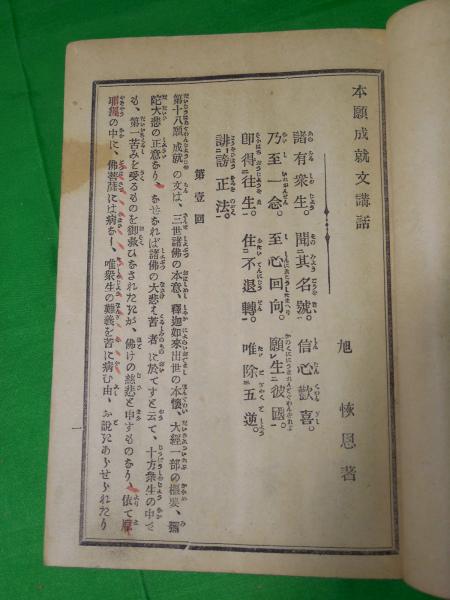 本願成就文講話
旭 恢恩著
諸有衆生。聞其名號。信心歡喜。
乃至一念。至心回向。願生彼國。
即得往生。住不退轉。唯除五逆。
誹謗正法。
第壹回
第十八願成就の文は、三世諸佛の本意、釋迦如來出世の本懷、大經一部の樞要、彌
陀大悲の正意なり、なぜなれば諸佛の大悲は苦者に於てすと云て、十方衆生の中で
も、第一苦みを受るものを御救ひなされたいが、佛けの慈悲と申すものなり、依て
の中に、佛菩薩には病なし、唯衆生の難義を苦に病む由、お説きあらせられたり
一